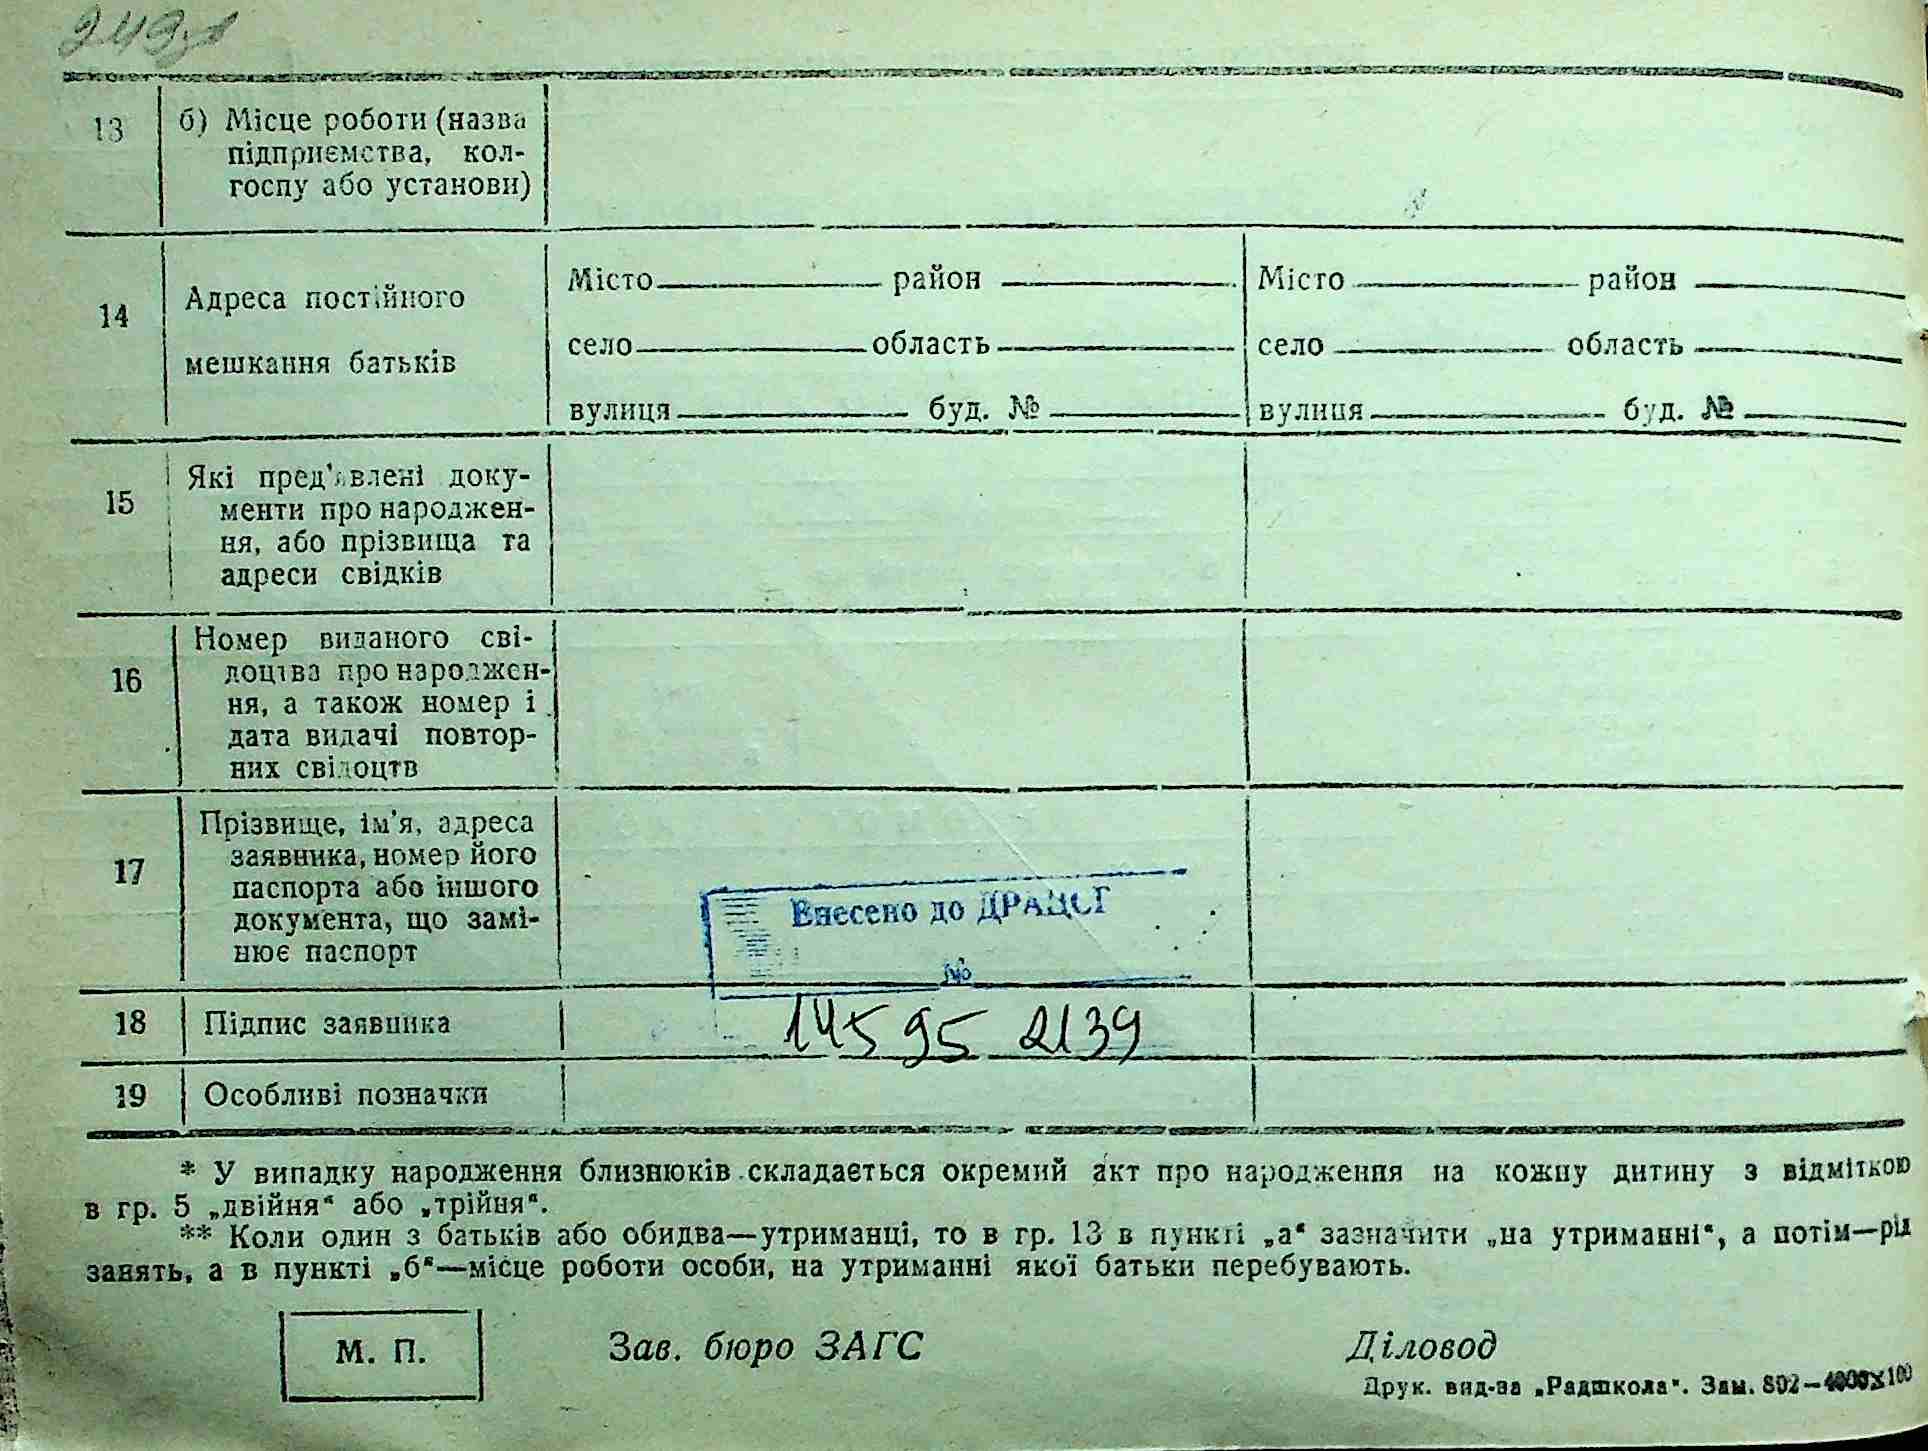 243
13
б) Місце роботи (назва
підприємства, кол-
госпу або установи)
14
Адреса постійного
мешкання батьків
Місто район
село область
вулиця буд. №
Місто район
село область
вулиця буд. №
15
Які пред'явлені доку-
менти про народжен-
ня, або прізвища та
адреси свідків
16
Номер виданого сві-
доцтва про народжен-
ня, а також номер і
дата видачі повтор-
них свідоцтв
17
Прізвище, ім'я, адреса
заявника, номер його
паспорта або іншого
документа, що замі-
нює паспорт
Внесено до ДРАЦСГ
№
14595 2139
18
Підпис заявника
19
Особливі позначки
* У випадку народження близнюків складається окремий акт про народження на кожну дитину з відміткою
в гр. 5 „двійня“ або „трійня“.
** Коли один з батьків або обидва—утриманці, то в гр. 13 в пункті „а“ зазначити „на утриманні“, а потім—рід
занять, а в пункті „б“—місце роботи особи, на утриманні якої батьки перебувають.
М. П.
Зав. бюро ЗАГС
Діловод
Друк. вид-ва „Радшкола“. Зам. 802—4000×100